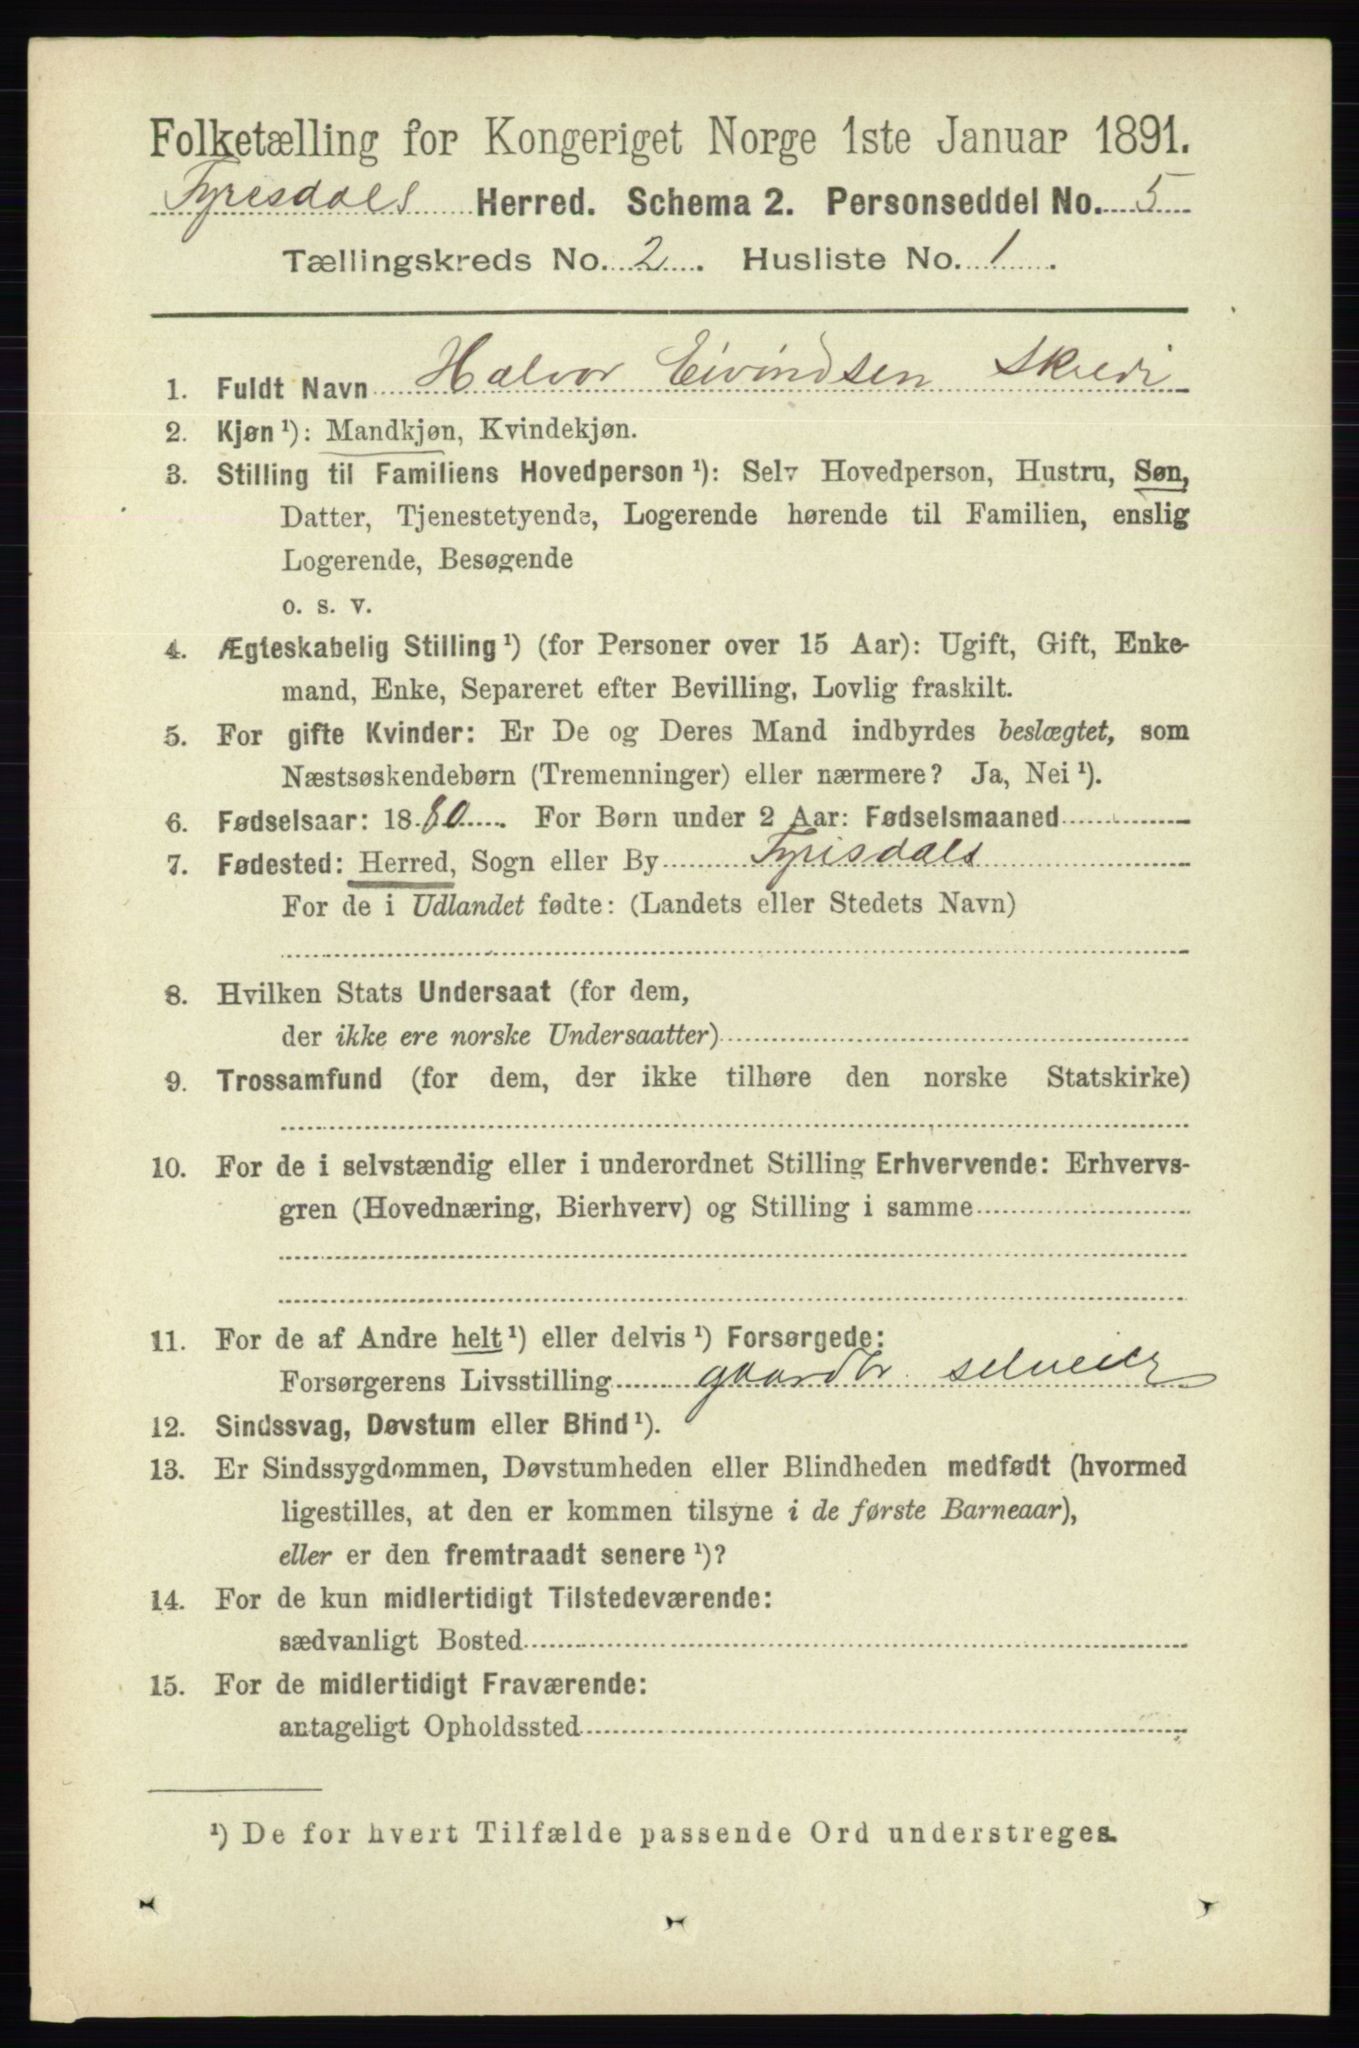 Folketælling for Kongeriget Norge 1ste Januar 1891.
Fyresdals Herred. Schema 2. Personseddel No. 5
Tællingskreds No. 2. Husliste No. 1.
1. Fuldt Navn Halvor Eivindsen Skredi
2. Kjøn¹): Mandkjøn, Kvindekjøn.
3. Stilling til Familiens Hovedperson¹): Selv Hovedperson, Hustru, Søn,
Datter, Tjenestetyende, Logerende hørende til Familien, enslig
Logerende, Besøgende
o. s. v.
4. Ægteskabelig Stilling¹) (for Personer over 15 Aar): Ugift, Gift, Enke-
mand, Enke, Separeret efter Bevilling, Lovlig fraskilt.
5. For gifte Kvinder: Er De og Deres Mand indbyrdes beslægtet, som
Næstsøskendebørn (Tremenninger) eller nærmere? Ja, Nei¹).
6. Fødselsaar: 1880. For Børn under 2 Aar: Fødselsmaaned
7. Fødested: Herred, Sogn eller By Fyrisdals
For de i Udlandet fødte: (Landets eller Stedets Navn)
8. Hvilken Stats Undersaat (for dem,
der ikke ere norske Undersaatter)
9. Trossamfund (for dem, der ikke tilhøre den norske Statskirke)
10. For de i selvstændig eller i underordnet Stilling Erhvervende: Erhvervs-
gren (Hovednæring, Bierhverv) og Stilling i samme
11. For de af Andre helt¹) eller delvis¹) Forsørgede:
Forsørgerens Livsstilling gaardbr. selveier
12. Sindssvag, Døvstum eller Blind¹).
13. Er Sindssygdommen, Døvstumheden eller Blindheden medfødt (hvormed
ligestilles, at den er kommen tilsyne i de første Barneaar),
eller er den fremtraadt senere¹)?
14. For de kun midlertidigt Tilstedeværende:
sædvanligt Bosted
15. For de midlertidigt Fraværende:
antageligt Opholdssted
¹) De for hvert Tilfælde passende Ord understreges.